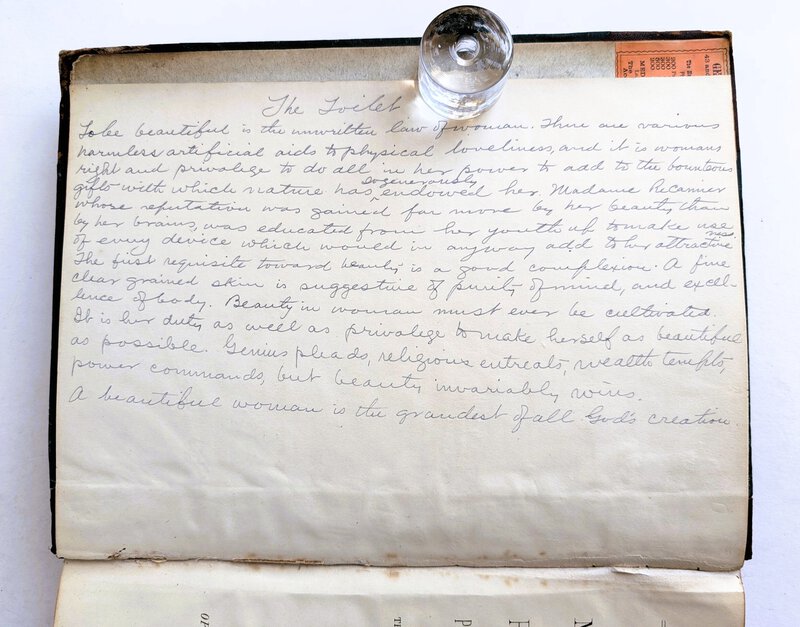 The Toilet
To be beautiful is the unwritten law of woman. There are various
harmless artificial aids to physical loveliness, and it is womans
right and privalege to do all in her power to add to the bounteous
gifts with which nature has so generously endowed her. Madame Recamier
whose reputation was gained far more by her beauty than
by her brains, was educated from her youth up to make use
of every device which would in anyway add to her attractiveness.
The first requisite toward beauty is a good complexion. A fine
clear grained skin is suggestive of purity of mind, and excel-
lence of body. Beauty in woman must ever be cultivated.
It is her duty as well as privalege to make herself as beautiful
as possible. Genius pleads, religious entreats, wealth tempts,
power commands, but beauty invariably wins.
A beautiful woman is the grandest of all God's creation.